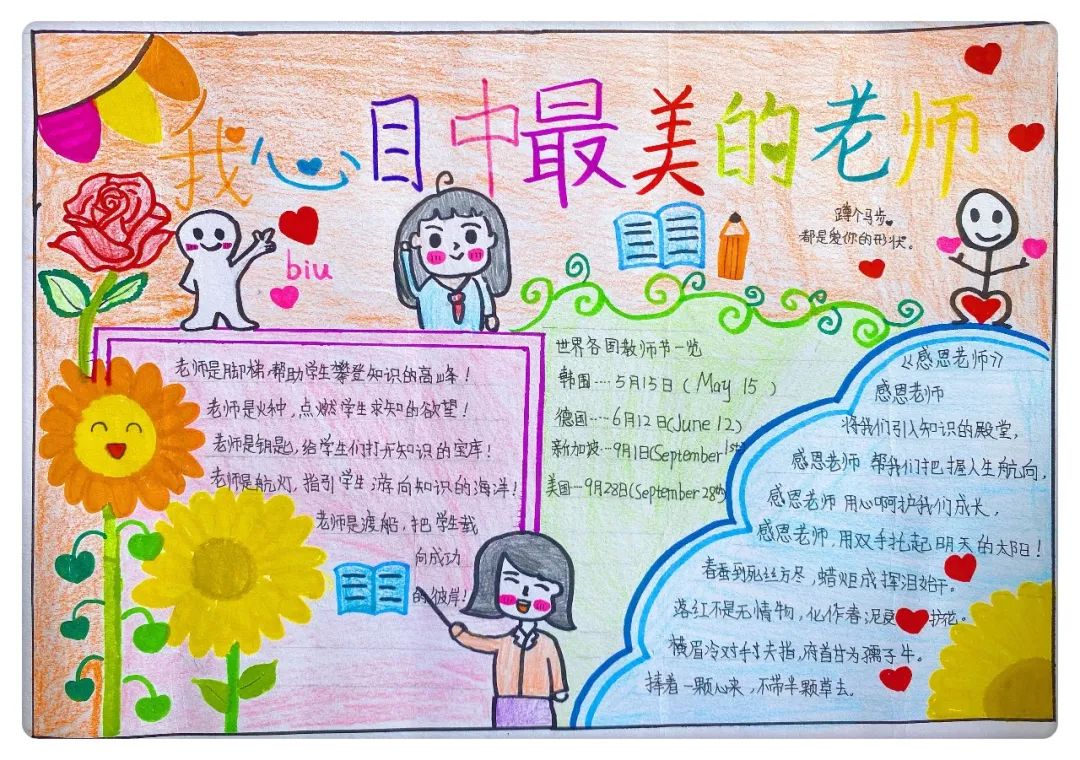 我心目中最美的老师
biu
蹲个马步
都是爱你的形状。
老师是脚梯,帮助学生攀登知识的高峰！
老师是火种,点燃学生求知的欲望！
老师是钥匙,给学生们打开知识的宝库！
老师是航灯,指引学生游向知识的海洋！
老师是渡船,把学生载
向成功
的彼岸！
世界各国教师节一览
韩国····5月15日(May 15)
德国····6月12日(June 12)
新加坡···9月1日(September 1st)
美国···9月28日(September 28th)
《感恩老师》
感恩老师
将我们引入知识的殿堂,
感恩老师 帮我们把握人生航向,
感恩老师 用心呵护我们成长,
感恩老师,用双手托起明天的太阳！
春蚕到死丝方尽,蜡炬成挥泪始干。
落红不是无情物,化作春泥更护花。
横眉冷对千夫指,俯首甘为孺子牛。
捧着一颗心来,不带半颗草去。